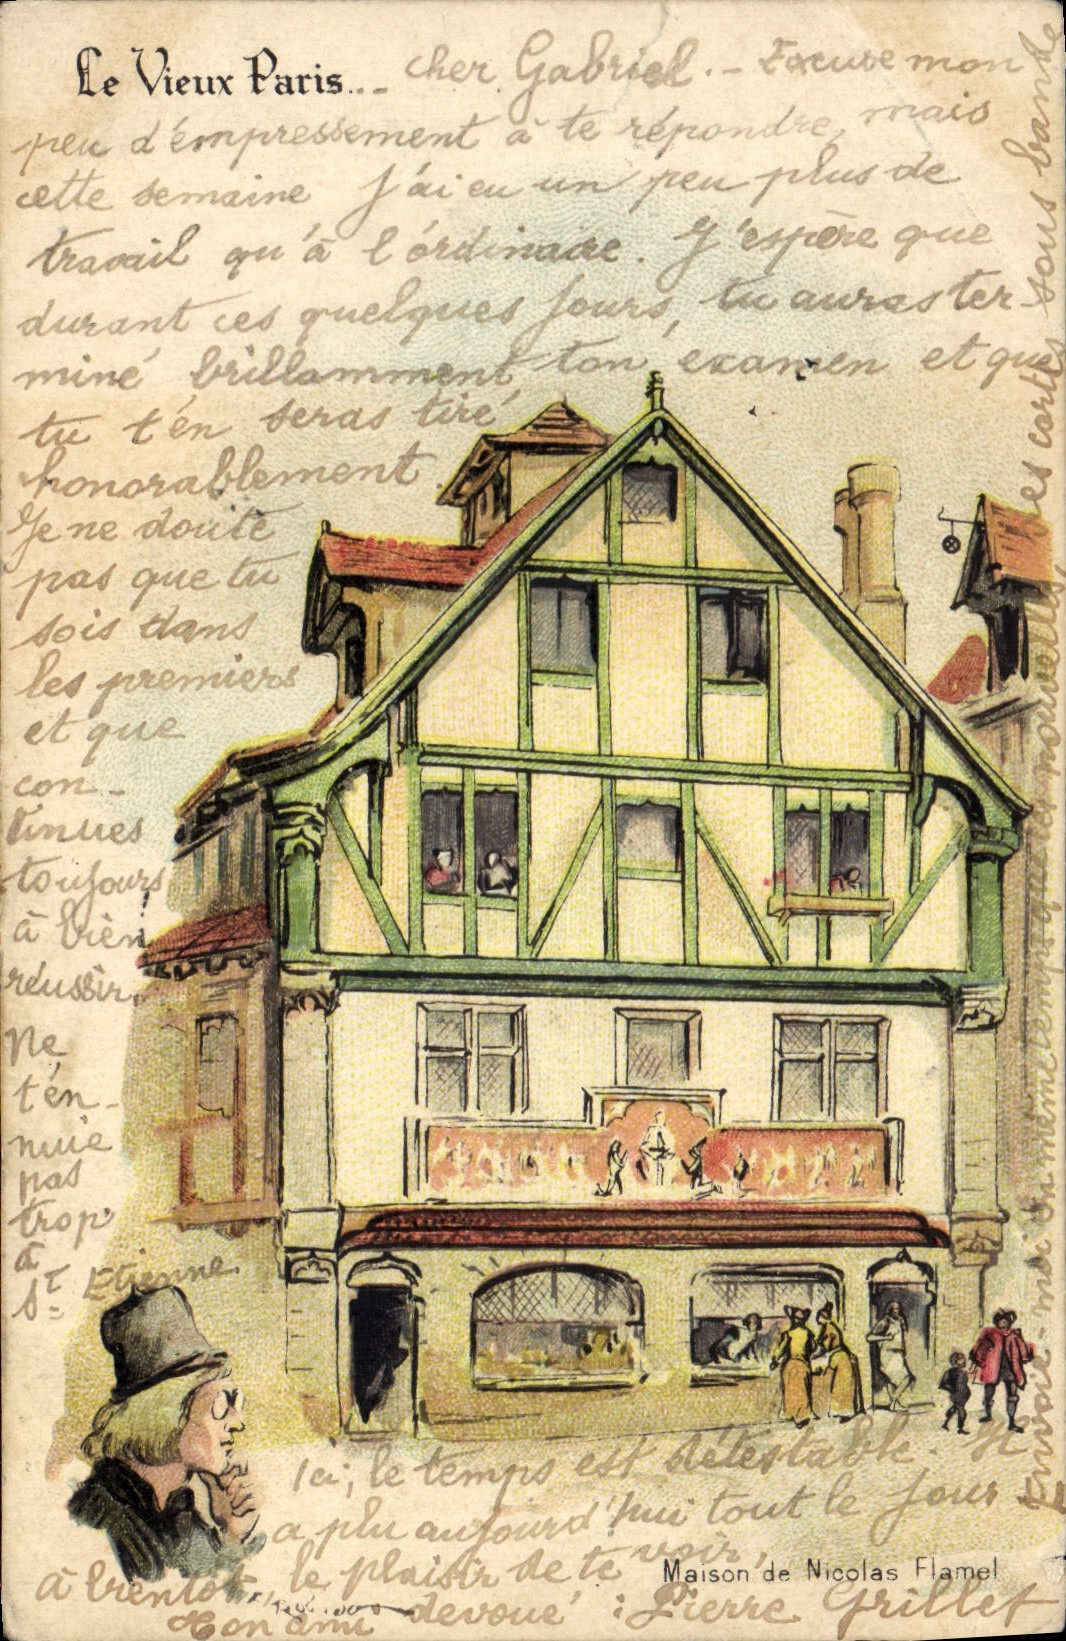 Le Vieux Paris... cher Gabriel. - Excuse mon
peu d'empressement à te répondre, mais
cette semaine J'ai eu un peu plus de
travail qu'à l'ordinaire. J'espère que
durant ces quelques jours, tu auras ter-
miné brillamment, ton examen et que
tu t'én seras tiré
honorablement.
Je ne doute
pas que tu
sois dans
les premiers
et que
con-
tinues
toujours
à bien
réussir.
Ne
t'én-
nuie
pas
trop
à
St Etienne.
Ici, le temps est détestable Il
a plu aujourd'hui tout le jour
à bientôt le plaisir de te voir,
Ton ami devoué : Pierre Grillet
Maison de Nicolas Flamel
Envoie-moi en même temps que tes nouvelles, les cartes sous bande